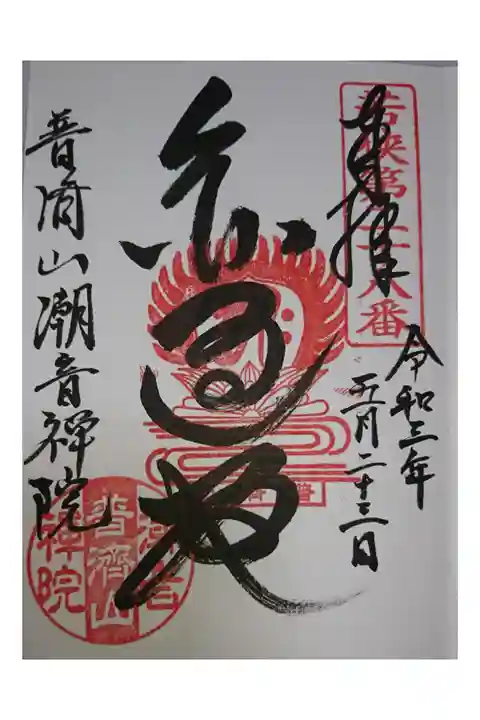 奉拝
若狭第二十八番
令和三年
五月二十三日
普済山潮音禅院
潮音
普濟山
禅院